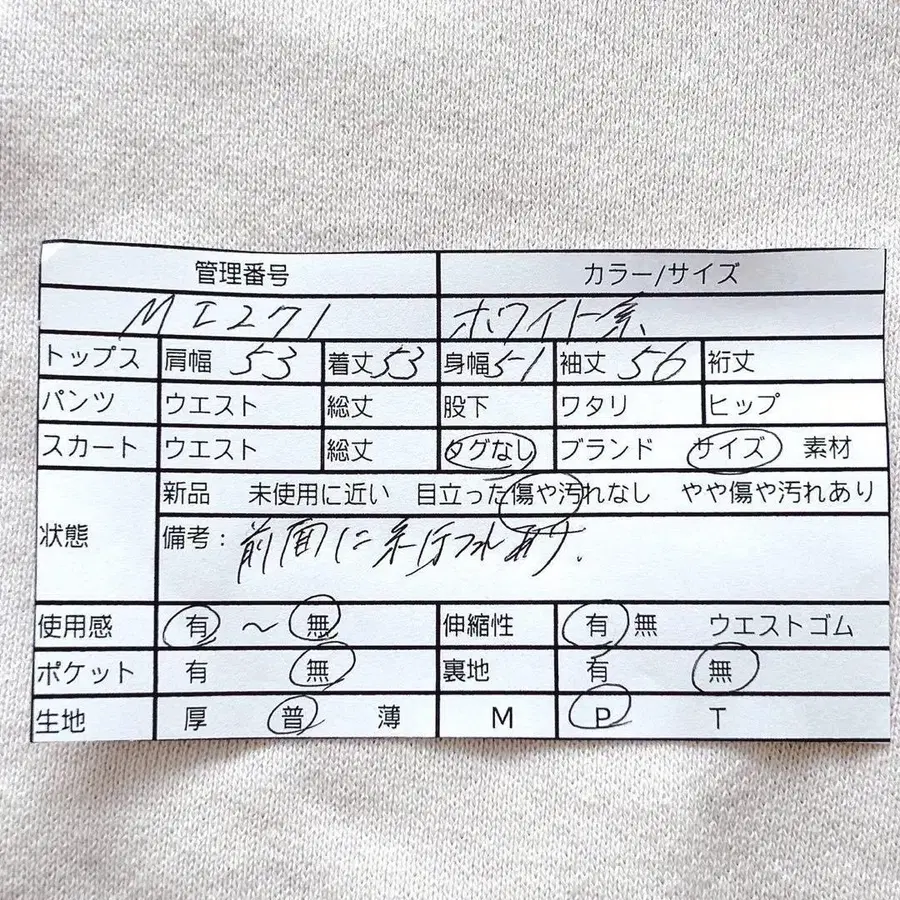 管理番号 カラー/サイズ
MI271 ホワイト系
トップス 肩幅 53 着丈 53 身幅 51 袖丈 56 裄丈
パンツ ウエスト 総丈 股下 ワタリ ヒップ
スカート ウエスト 総丈 タグなし ブランド サイズ 素材
状態 新品 未使用に近い 目立った傷や汚れなし やや傷や汚れあり
備考: 前面に 汚れあり.
使用感 有 ～ 無 伸縮性 有 無 ウエストゴム
ポケット 有 無 裏地 有 無
生地 厚 普 薄 M P T